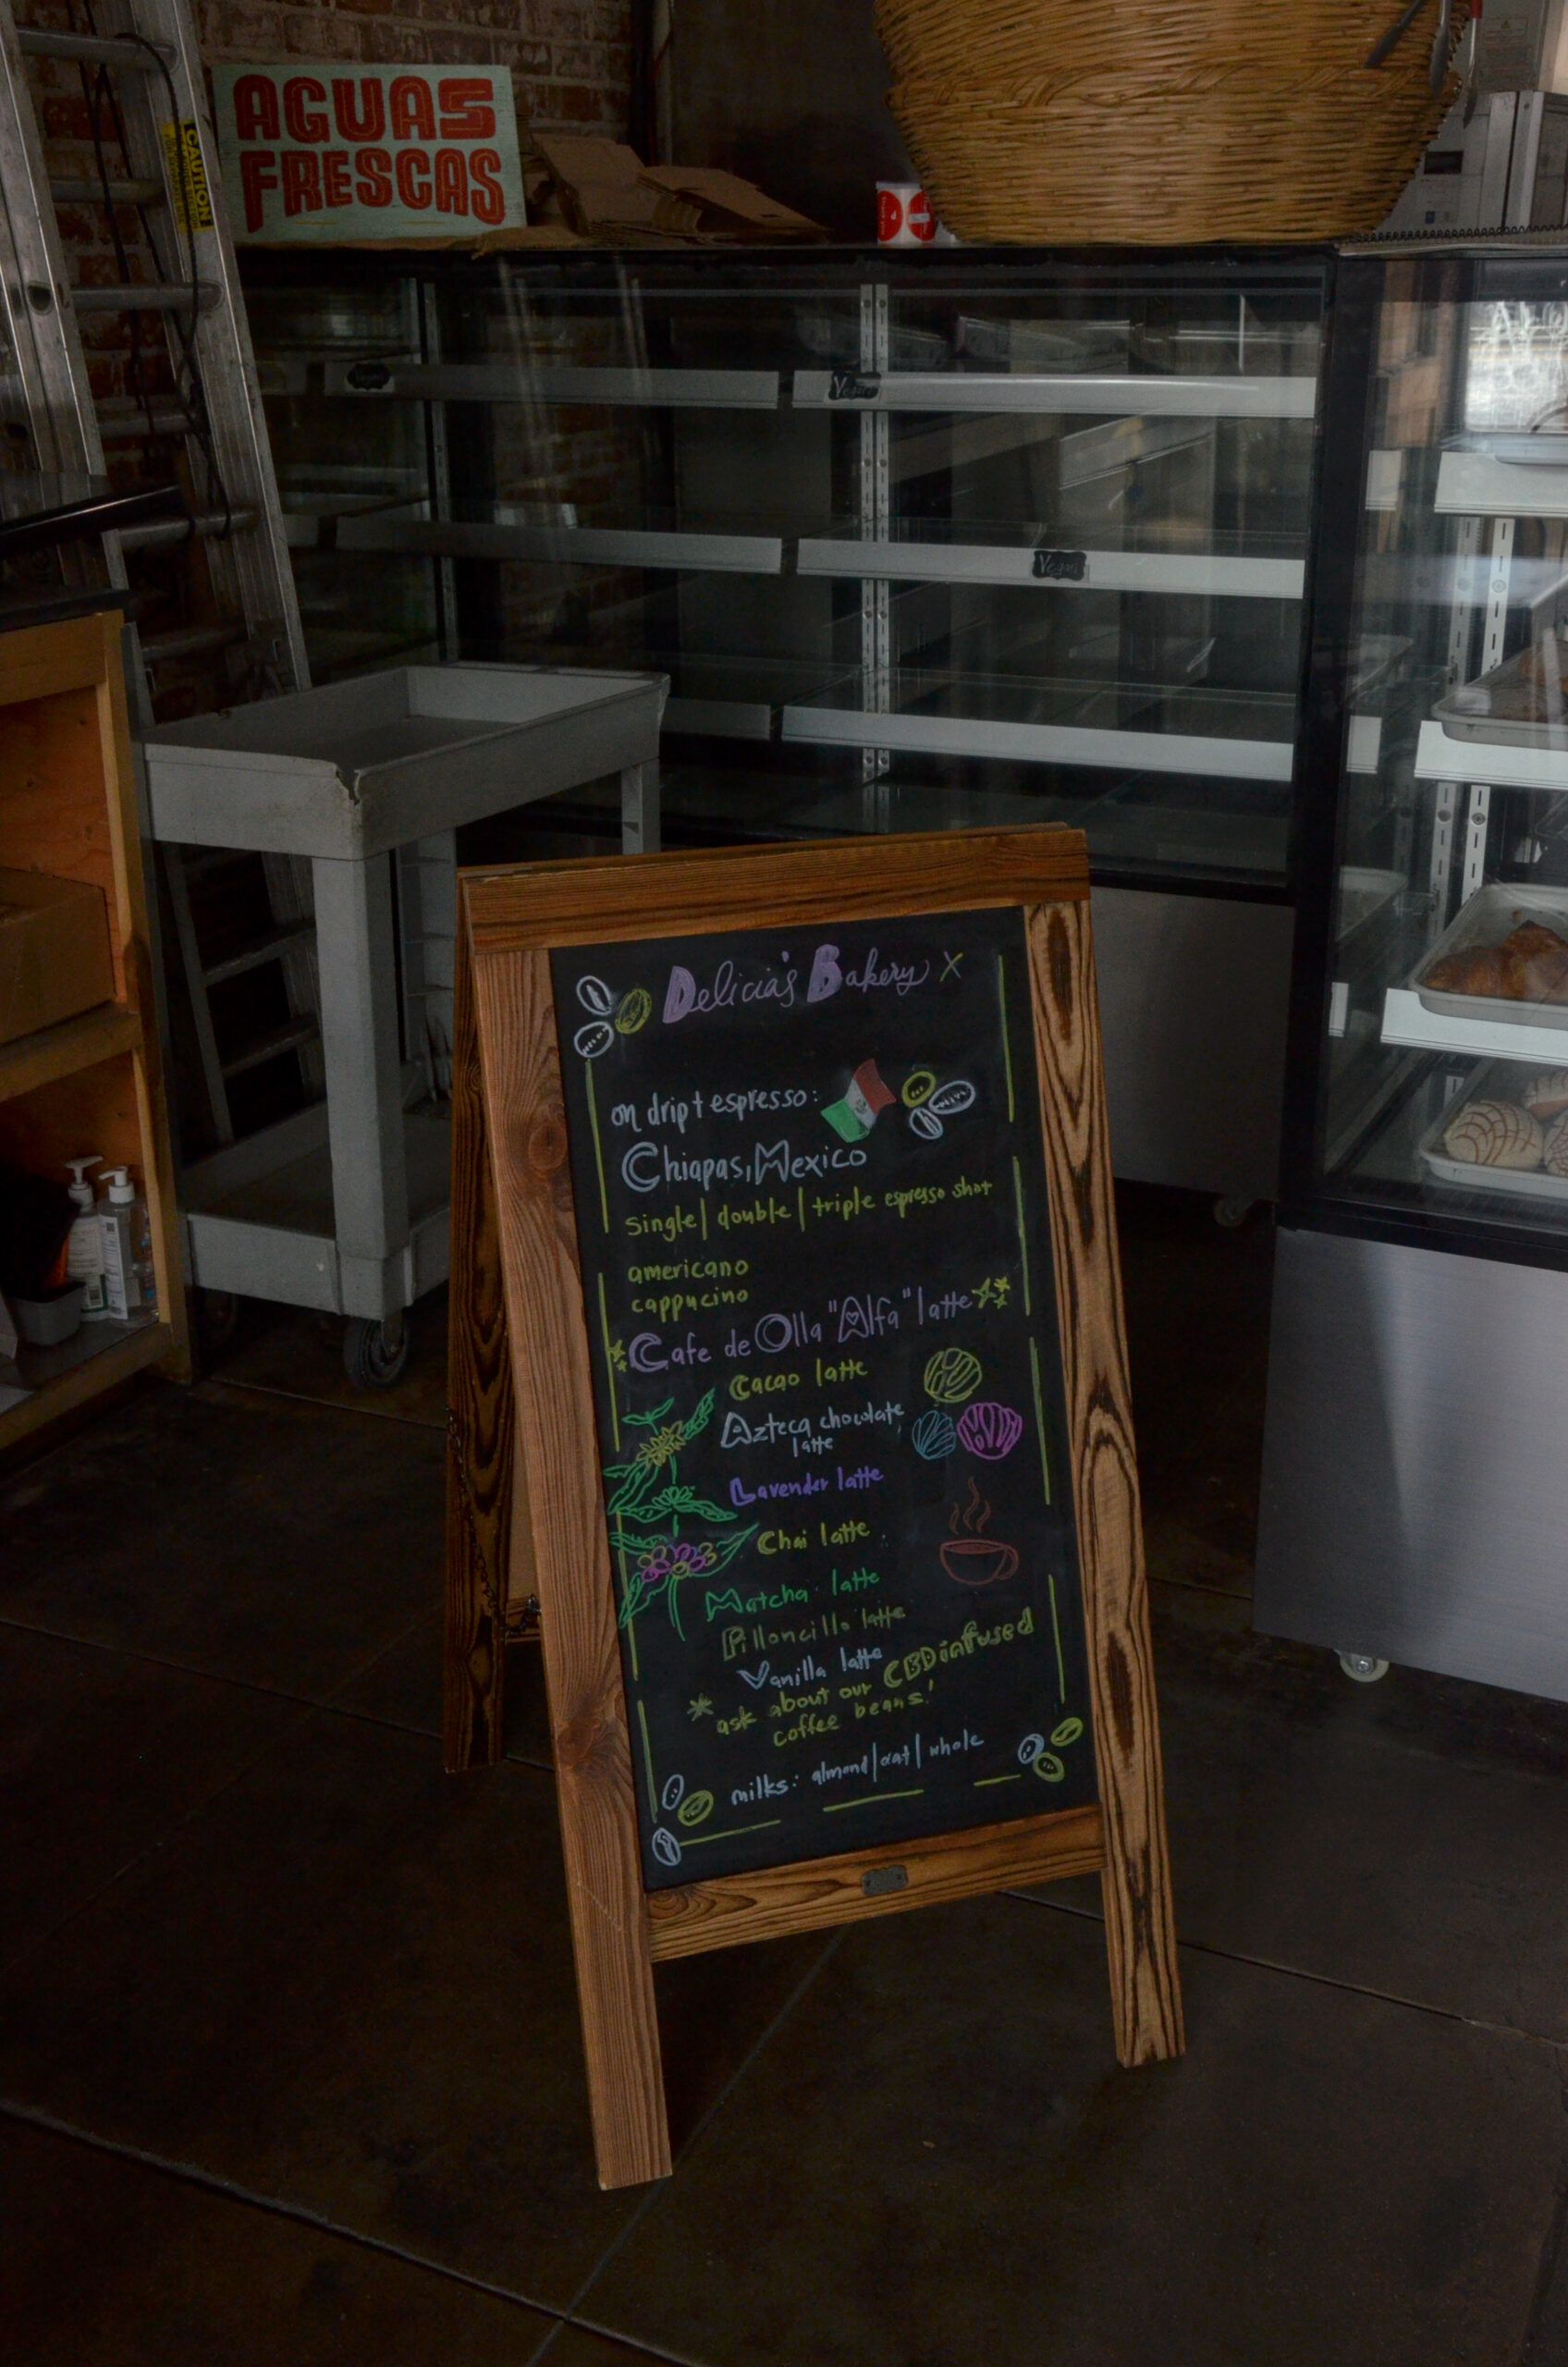 AGUAS
FRESCAS
CAUTION
Vegan
Vegan
Delicia's Bakery X
on drip + espresso:
Chiapas, Mexico
single / double / triple espresso shot
americano
cappucino
Cafe de Olla "Alfa" latte
Cacao latte
Azteca chocolate
latte
Lavender latte
Chai latte
Matcha latte
Pilloncillo latte
Vanilla latte
* ask about our CBD infused
coffee beans!
milks: almond / oat / whole